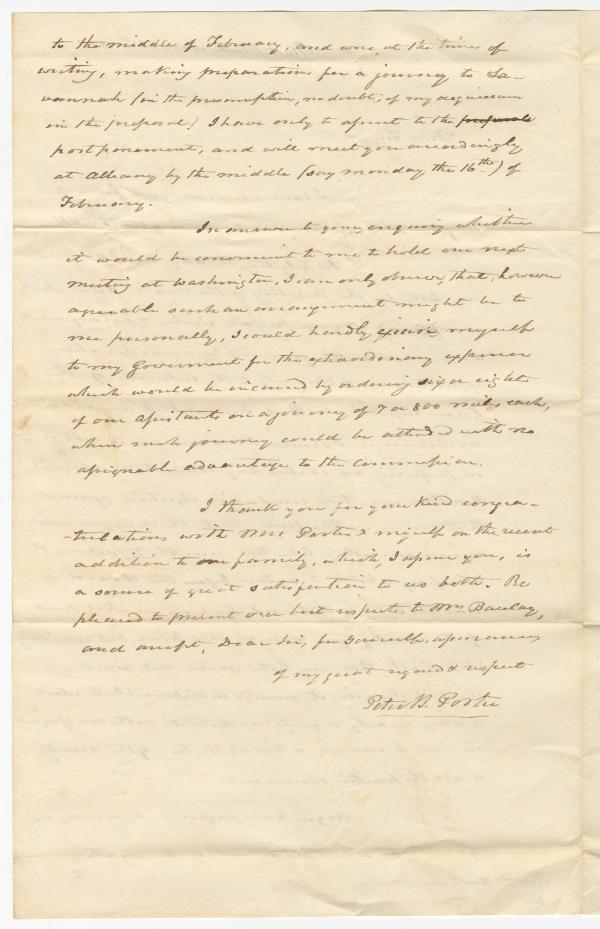 to the middle of February, and were, at the time of
writing, making preparations for a journey to Sa-
vannah (in the presumption, no doubt, of my acquiescence
in the proposal) I have only to assent to the proposal
postponement, and will meet you accordingly
at Albany by the middle (say monday the 16th) of
February.
In answer to your enquiry whether
it would be convenient to me to hold our next
meeting at Washington, I can only observe, that, however
agreeable such an arrangement might be to
me personally, I could hardly excuse myself
to my Government for the extraordinary expense
which would be incurred by ordering six or eight
of our assistants on a journey of 7 or 800 miles each,
when such journey could be attended with no
assignable advantage to the Commission.
I thank you for your kind congra-
-tulations with Mrs Porter & myself on the recent
addition to our family, which, I assure you, is
a source of great satisfaction to us both. Be
pleased to present our best respects to Mrs Barclay,
and accept, Dear Sir, for yourself, assurances
of my great regard & respect
Peter B. Porter